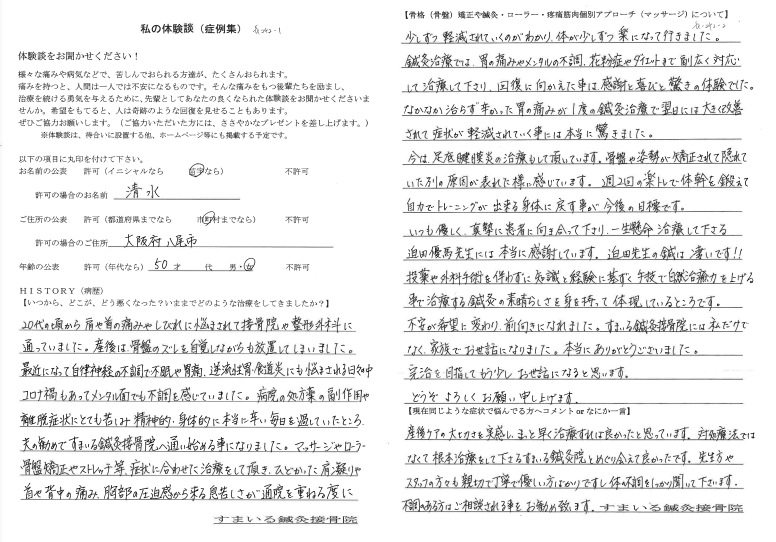 私の体験談（症例集）
体験談をお聞かせください！
様々な痛みや病気などで、苦しんでおられる方達が、たくさんおられます。
痛みを持つと、人間は一人では不安になるものです。そんな痛みをもつ後輩たちを励まし、
治療を続ける勇気を与えるために、先輩としてあなたの良くなられた体験談をお聞かせくださいま
せんか。希望をもてると、人は奇跡のような回復を見せることもあります。
ぜひご協力お願いします。（ご協力いただいた方には、ささやかなプレゼントを差し上げます。）
※体験談は、待合いに設置する他、ホームページ等にも掲載する予定です。
以下の項目に丸印を付けて下さい。
お名前の公表　許可（イニシャルなら　苗字なら）　不許可
許可の場合のお名前　清水
ご住所の公表　許可（都道府県までなら　市町村までなら）　不許可
許可の場合のご住所　大阪府八尾市
年齢の公表　許可（年代なら）　50才　代　男・女　不許可
HISTORY（病歴）
【いつから、どこが、どう悪くなった？いままでどのような治療をしてきましたか？】
20代の頃から肩や首の痛みやしびれに悩まされて接骨院や整形外科に
通っていました。産後は骨盤のズレを自覚しながらも放置してしまいました。
最近になって自律神経の不調で不眠や胃痛、逆流性胃・食道炎にも悩まされる日々の中
コロナ禍もあってメンタル面でも不調を感じていました。病院の処方薬の副作用や
離脱症状にとても苦しみ精神的・身体的に本当に辛い毎日を過していたところ
夫の勧めですまいる鍼灸接骨院へ通い始める事になりました。マッサージやローラー
骨盤矯正やストレッチ等、症状に合わせた治療をして頂き、ひどかった肩凝りや
首や背中の痛み、胸部の圧迫感から来る息苦しさが通院を重ねる度に
すまいる鍼灸接骨院
【骨格（骨盤）矯正や鍼灸・ローラー・疼痛筋肉個別アプローチ（マッサージ）について】
少しずつ軽減されていくのがわかり、体が少しずつ楽になって行きました。
鍼灸治療では、胃の痛みやメンタルの不調、花粉症やダイエットまで幅広く対応
して治療して下さり、回復に向かえた事は、感謝と喜びと驚きの体験でした。
なかなか治らず辛かった胃の痛みが1度の鍼灸治療で翌日には大きく改善
されて症状が軽減されていく事には本当に驚きました。
今は、足底腱膜炎の治療もして頂いています。骨盤や姿勢が矯正されて隠れて
いた別の原因が表れた様に感じています。週2回の楽トレで体幹を鍛えて
自力でトレーニングが出来る身体に戻す事が今後の目標です。
いつも優しく、真摯に患者に向き合って下さり、一生懸命治療して下さる
迫田優馬先生には本当に感謝しています。迫田先生の鍼は凄いです!!
投薬や外科手術を伴わずに知識と経験に基ずく手技で自然治癒力を上げる
事で治療する鍼灸の素晴らしさを身を持って体現しているところです。
不安が希望に変わり、前向きになれました。すまいる鍼灸接骨院には私だけで
なく、家族でお世話になりました。本当にありがとうございました。
完治を目指してもう少しお世話になると思います。
どうぞよろしくお願い申し上げます。
【現在同じような症状で悩んでる方へコメントorなにか一言】
産後ケアの大切さを実感し、もっと早く治療すれば良かったと思っています。対処療法では
なくて根本治療をして下さるすまいる鍼灸院とめぐり会えて良かったです。先生方や
スタッフの方々も親切で丁寧で優しい方ばかりですし体の不調をしっかり聞いて下さいます。
不調のある方はご相談される事をお勧め致します。すまいる鍼灸接骨院